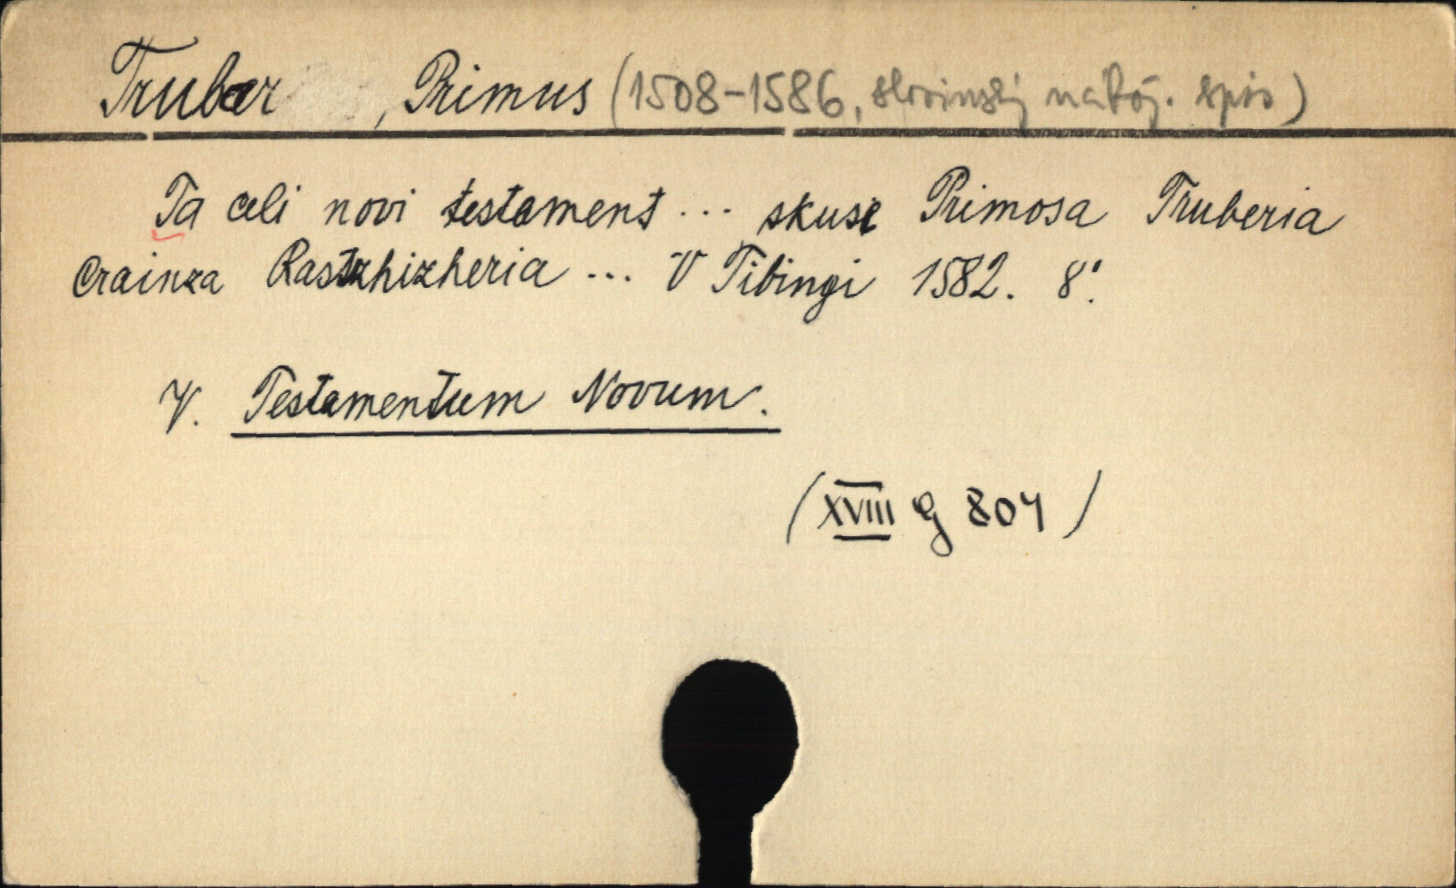 Trubar, Primus (1508-1586, slovinský nábož. spis)
Ta celi novi testament ... skusi Primosa Truberia
Crainza Rastzhizheria ... V Tibingi 1582. 8°.
V. Testamentum Novum.
(XVIII G 804)